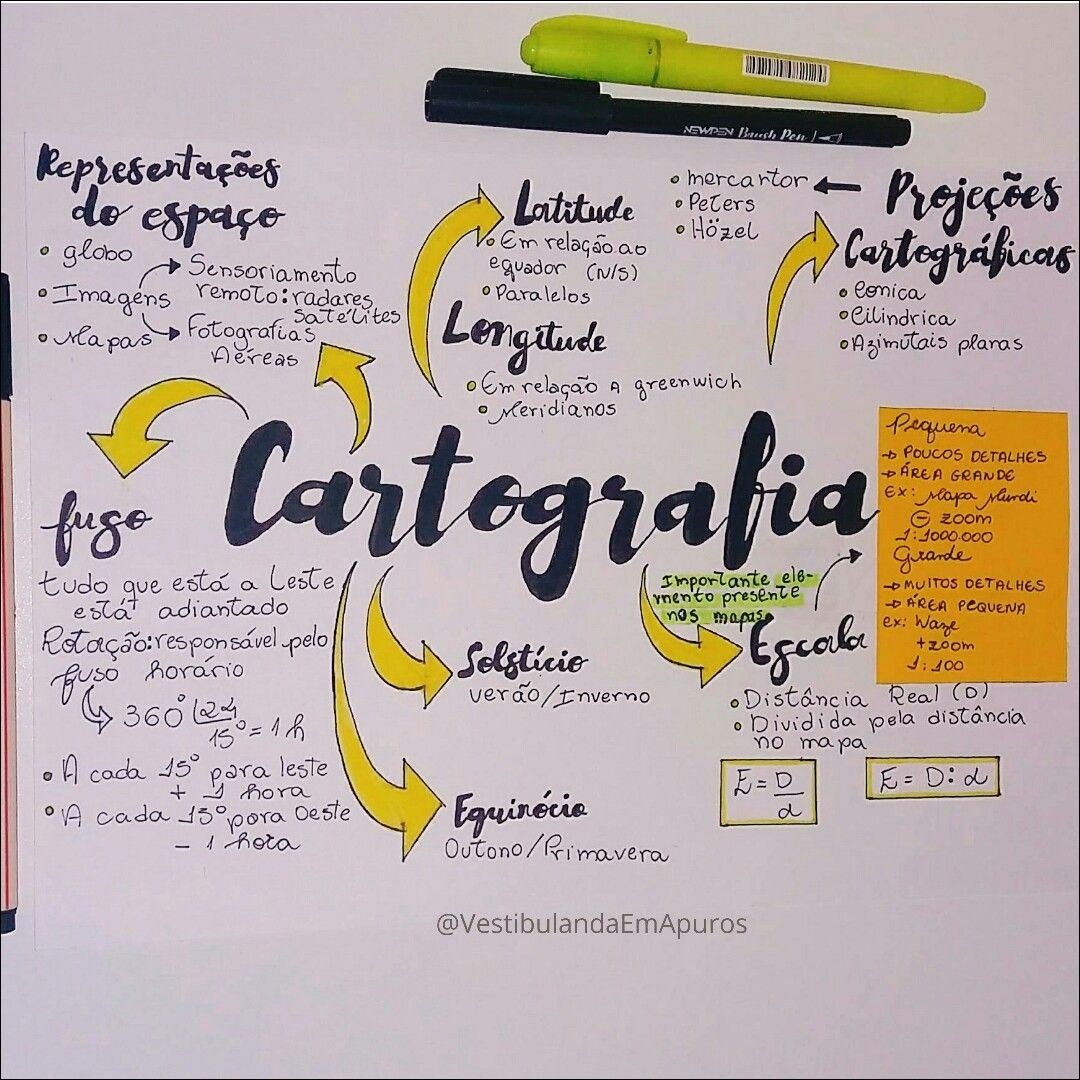 NEWPEN Brush Pen
Representações
do espaço
• globo
• Imagens
• Mapas
Sensoriamento
remoto: radares
satélites
Fotografias
Aéreas
Latitude
• Em relação ao
equador (N/S)
• Paralelos
Longitude
• Em relação A greenwich
• Meridianos
Projeções
Cartográficas
• mercartor
• Peters
• Hözel
• Conica
• Cilindrica
• Azimutais planas
Cartografia
fuso
tudo que está a Leste
está adiantado
Rotação: responsável pelo
fuso horário
360° 24
15° = 1 h
• A cada 15° para leste
+ 1 hora
• A cada 15° para Oeste
- 1 hora
Solstício
verão/Inverno
Equinócio
Outono/Primavera
Importante ele-
mento presente
nos mapas
Escala
• Distância Real (D)
• Dividida pela distância
no mapa
E = D
d
E = D : d
Pequena
→ POUCOS DETALHES
→ ÁREA GRANDE
Ex: Mapa Mundi
⊖ zoom
1:1000.000
Grande
→ MUITOS DETALHES
→ ÁREA PEQUENA
ex: Waze
+zoom
1:100
@VestibulandaEmApuros